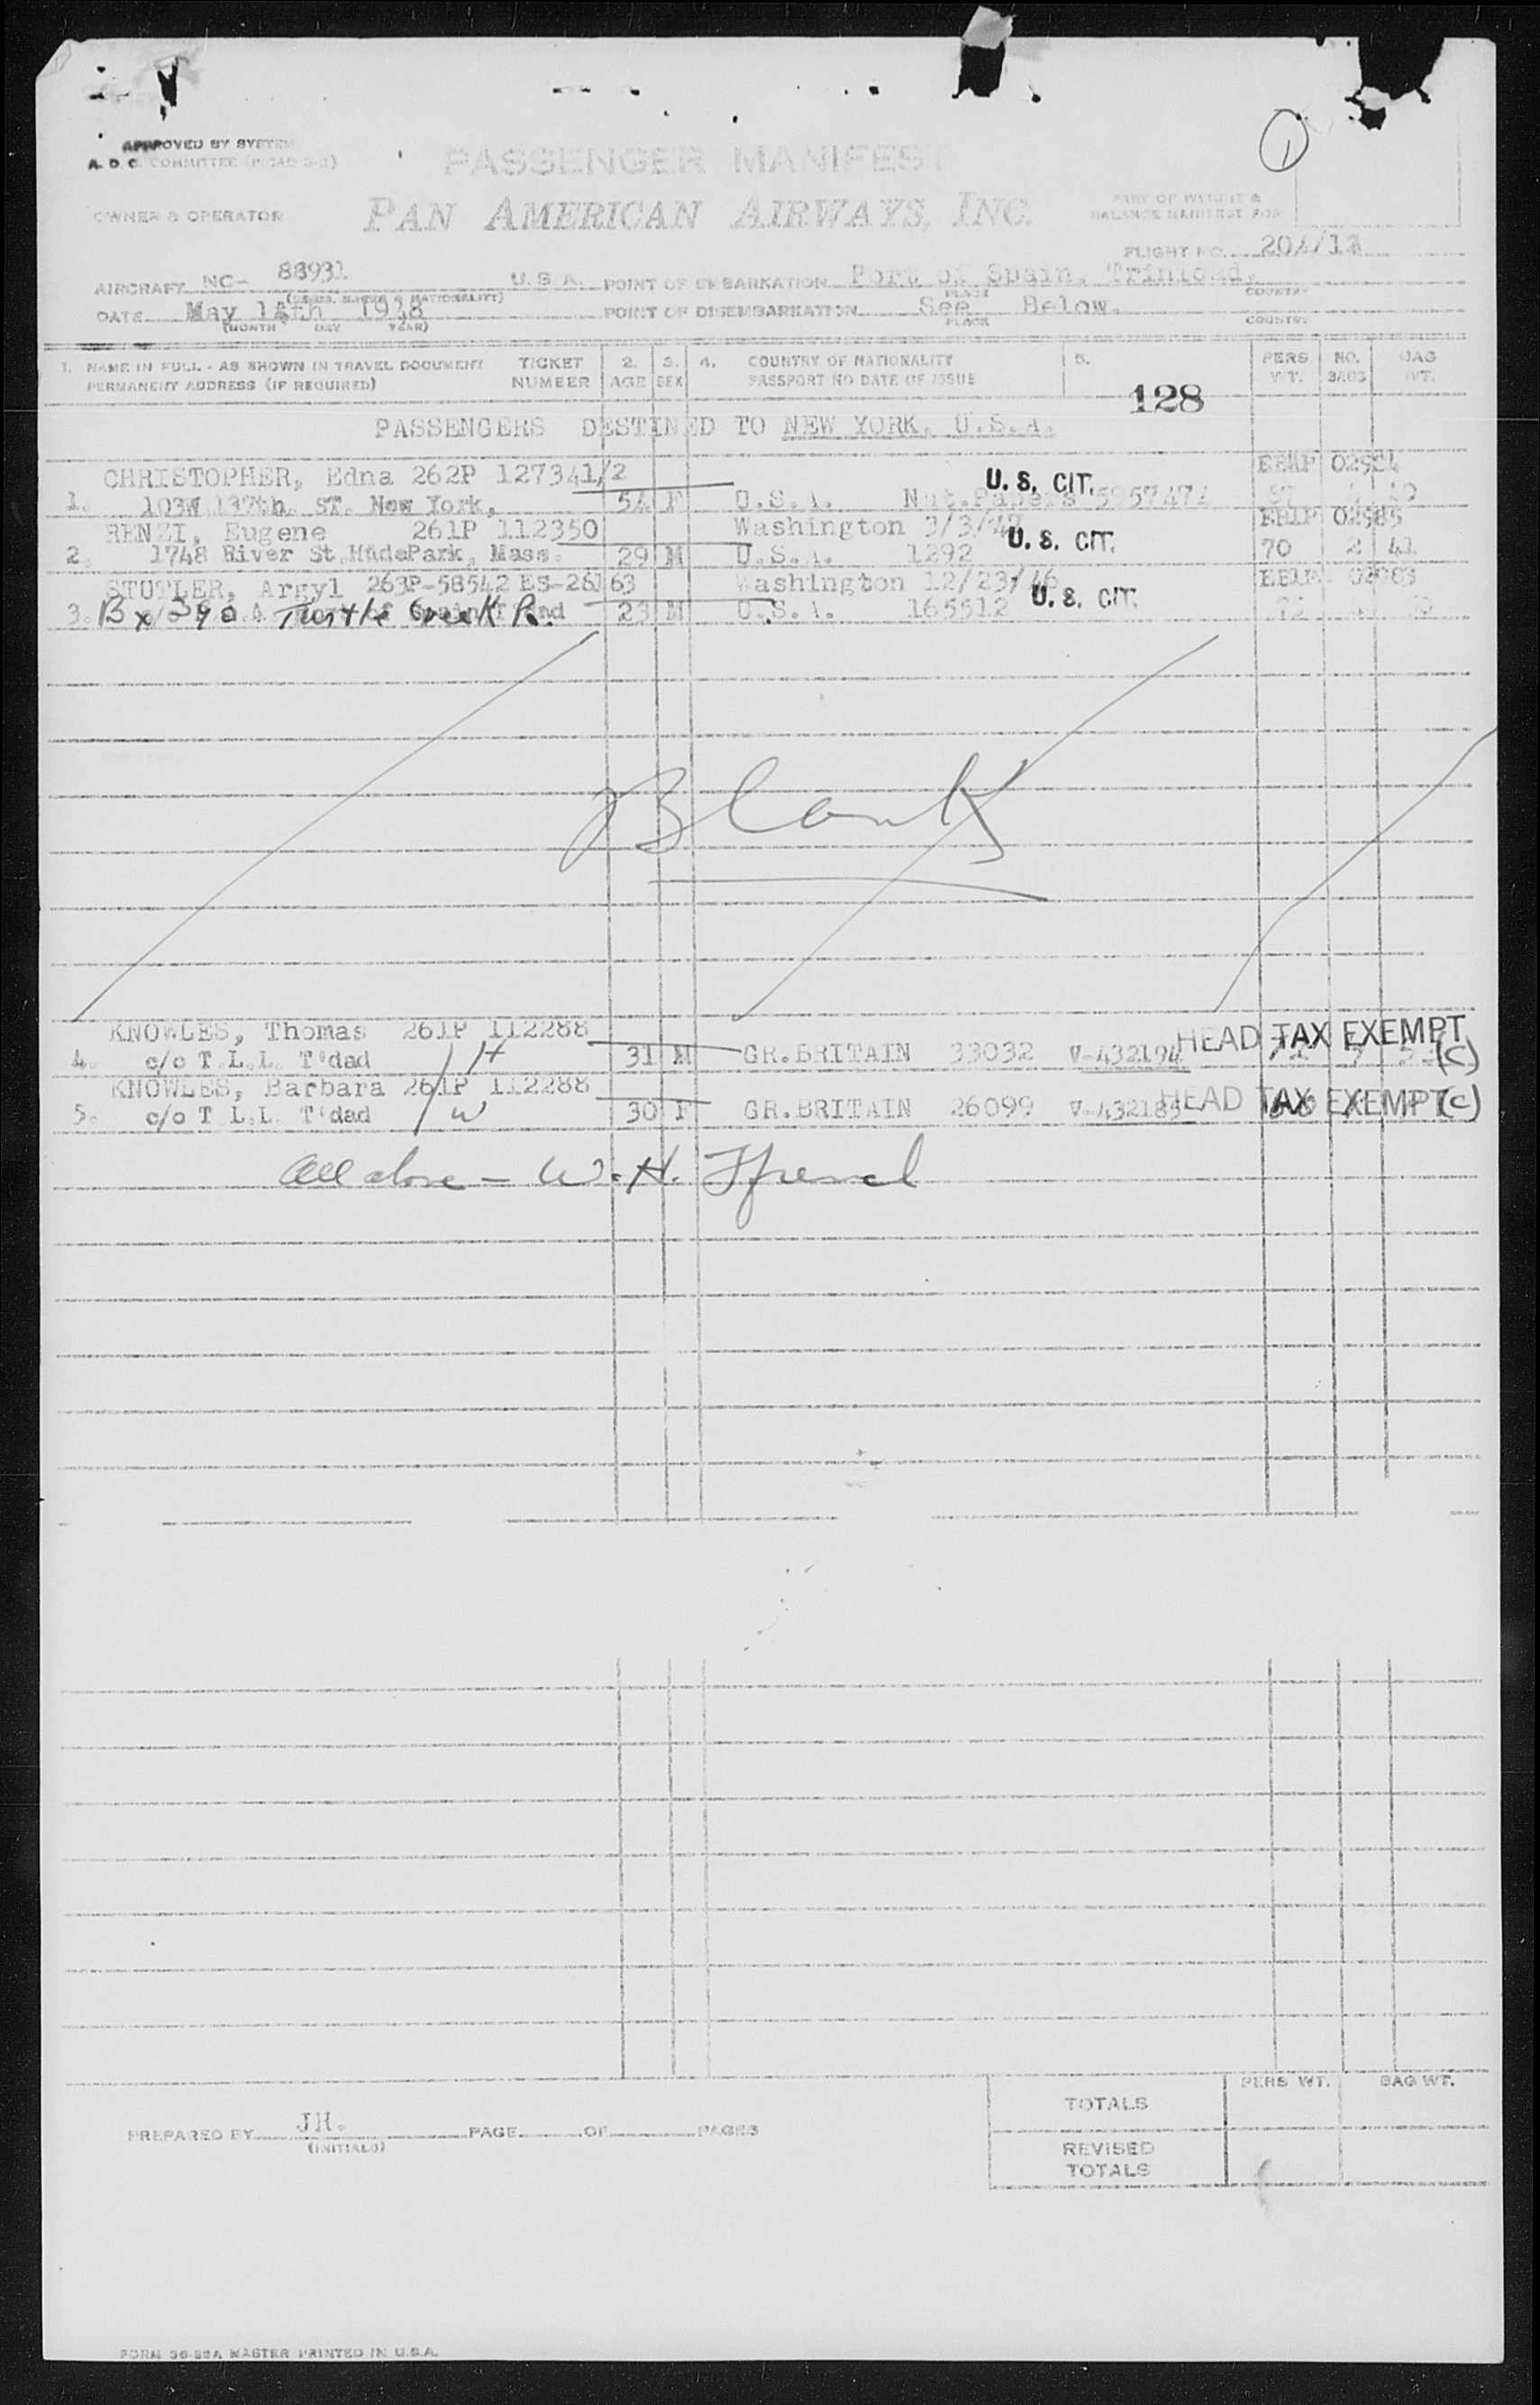 1
APPROVED BY SYSTEM
A. D. C. COMMITTEE
PASSENGER MANIFEST
OWNER & OPERATOR
PAN AMERICAN AIRWAYS, INC.
PART OF WEIGHT &
BALANCE MANIFEST FOR
FLIGHT NO.
AIRCRAFT NC- 88931 U.S.A. POINT OF EMBARKATION Port of Spain, Trinidad.
PLACE COUNTRY
DATE May 1948 POINT OF DISEMBARKATION See Below.
(MONTH DAY YEAR) PLACE COUNTRY
1. NAME IN FULL - AS SHOWN IN TRAVEL DOCUMENT TICKET 2. 3. 4. COUNTRY OF NATIONALITY 5. PERS NO. BAG
PERMANENT ADDRESS (IF REQUIRED) NUMBER AGE SEX PASSPORT NO DATE OF ISSUE WT. BAGS WT.
128
PASSENGERS DESTINED TO NEW YORK, U.S.A.
CHRISTOPHER, Edna 262P 127341/2 U. S. CIT.
1. 103W 137th. ST. New York, 54 F U.S.A. Nat.Papers 5957474
RENZI, Eugene 261P 112350 Washington 3/3/47 U. S. CIT. 02985
2. 1748 River St HydePark, Mass. 29 M U.S.A. 1292 70 2 41
STUTLER, Argyl 263P-58542 ES-26163 Washington 12/23/46 U. S. CIT.
3. Bx 390 Turtle Creek Pa. 23 M U.S.A. 165512
Blank
KNOWLES, Thomas 261P 112288 HEAD TAX EXEMPT
4. c/o T.L.L. T'dad H 31 M GR.BRITAIN 33032 V-432194 (C)
KNOWLES, Barbara 261P 112288
5. c/o T.L.L. T'dad W 30 F GR.BRITAIN 26099 HEAD TAX EXEMPT (C)
All above - W. H.
TOTALS PERS WT. BAG WT.
PREPARED BY JH. PAGE OF PAGES
(INITIALS)
REVISED
TOTALS
FORM 36-88A MASTER PRINTED IN U.S.A.